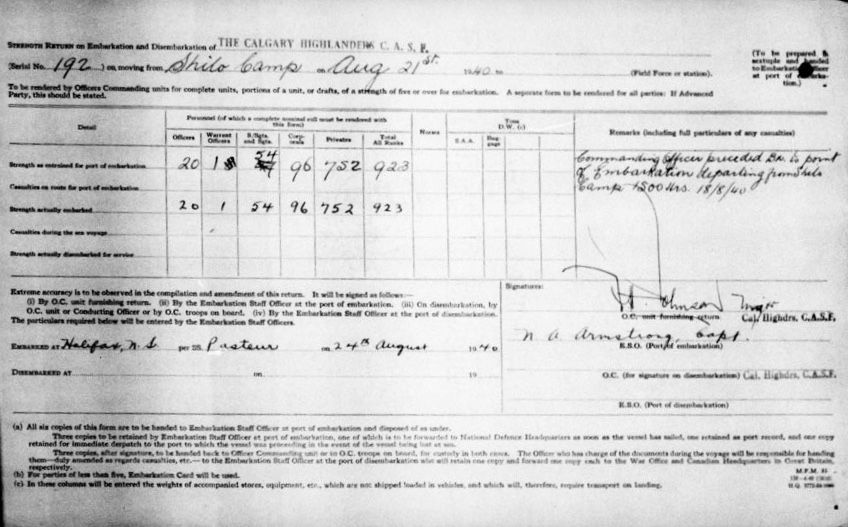 STRENGTH RETURN on Embarkation and Disembarkation of THE CALGARY HIGHLANDERS C. A. S. F.
(Serial No. 192 ) on moving from Shilo Camp on Aug 21st. 1940 to (Field Force or station).
(To be prepared in sextuple and handed to Embarkation Officer at port of Embarkation.)
To be rendered by Officers Commanding units for complete units, portions of a unit, or drafts, of a strength of five or over for embarkation. A separate form to be rendered for all parties: If Advanced
Party, this should be stated.
Detail
Personnel (of which a complete nominal roll must be rendered with this form)
Officers Warrant Officers S/Sgts. and Sgts. Corporals Privates Total All Ranks
Horses
Tons D.W. (c)
S.A.A. Baggage
Remarks (including full particulars of any casualties)
Strength as entrained for port of embarkation 20 1 54 96 752 923
Casualties en route for port of embarkation
Strength actually embarked 20 1 54 96 752 923
Casualties during the sea voyage
Strength actually disembarked for service
Commanding Officer preceded Bn. to point
of Embarkation departing from Shilo
Camp 1500 Hrs. 18/8/40
Extreme accuracy is to be observed in the compilation and amendment of this return. It will be signed as follows:—
(i) By O.C. unit furnishing return. (ii) By the Embarkation Staff Officer at the port of embarkation. (iii) On disembarkation, by
O.C. unit or Conducting Officer or by O.C. troops on board. (iv) By the Embarkation Staff Officer at the port of disembarkation.
The particulars required below will be entered by the Embarkation Staff Officers.
EMBARKED AT Halifax, N. S. per SS. Pasteur on 24th August 1940
DISEMBARKED AT on 19
Signatures:
Johnson Major
O.C. unit furnishing return Cal. Highdrs. C.A.S.F.
N. A. Armstrong, Capt.
E.S.O. (Port of embarkation)
O.C. (for signature on disembarkation) Cal. Highdrs. C.A.S.F.
E.S.O. (Port of disembarkation)
(a) All six copies of this form are to be handed to Embarkation Staff Officer at port of embarkation and disposed of as under.
Three copies to be retained by Embarkation Staff Officer at port of embarkation, one of which is to be forwarded to National Defence Headquarters as soon as the vessel has sailed, one retained as port record, and one copy
retained for immediate despatch to the port to which the vessel was proceeding in the event of the vessel being lost at sea.
Three copies, after signature, to be handed back to Officer Commanding unit or to O.C. troops on board, for custody in both cases. The Officer who has charge of the documents during the voyage will be responsible for handing
them—duly amended as regards casualties, etc.—to the Embarkation Staff Officer at the port of disembarkation who will retain one copy and forward one copy each to the War Office and Canadian Headquarters in Great Britain,
respectively.
(b) For parties of less than five, Embarkation Card will be used.
(c) In these columns will be entered the weights of accompanied stores, equipment, etc., which are not shipped loaded in vehicles, and which will, therefore, require transport on landing.
M.F.M. 85